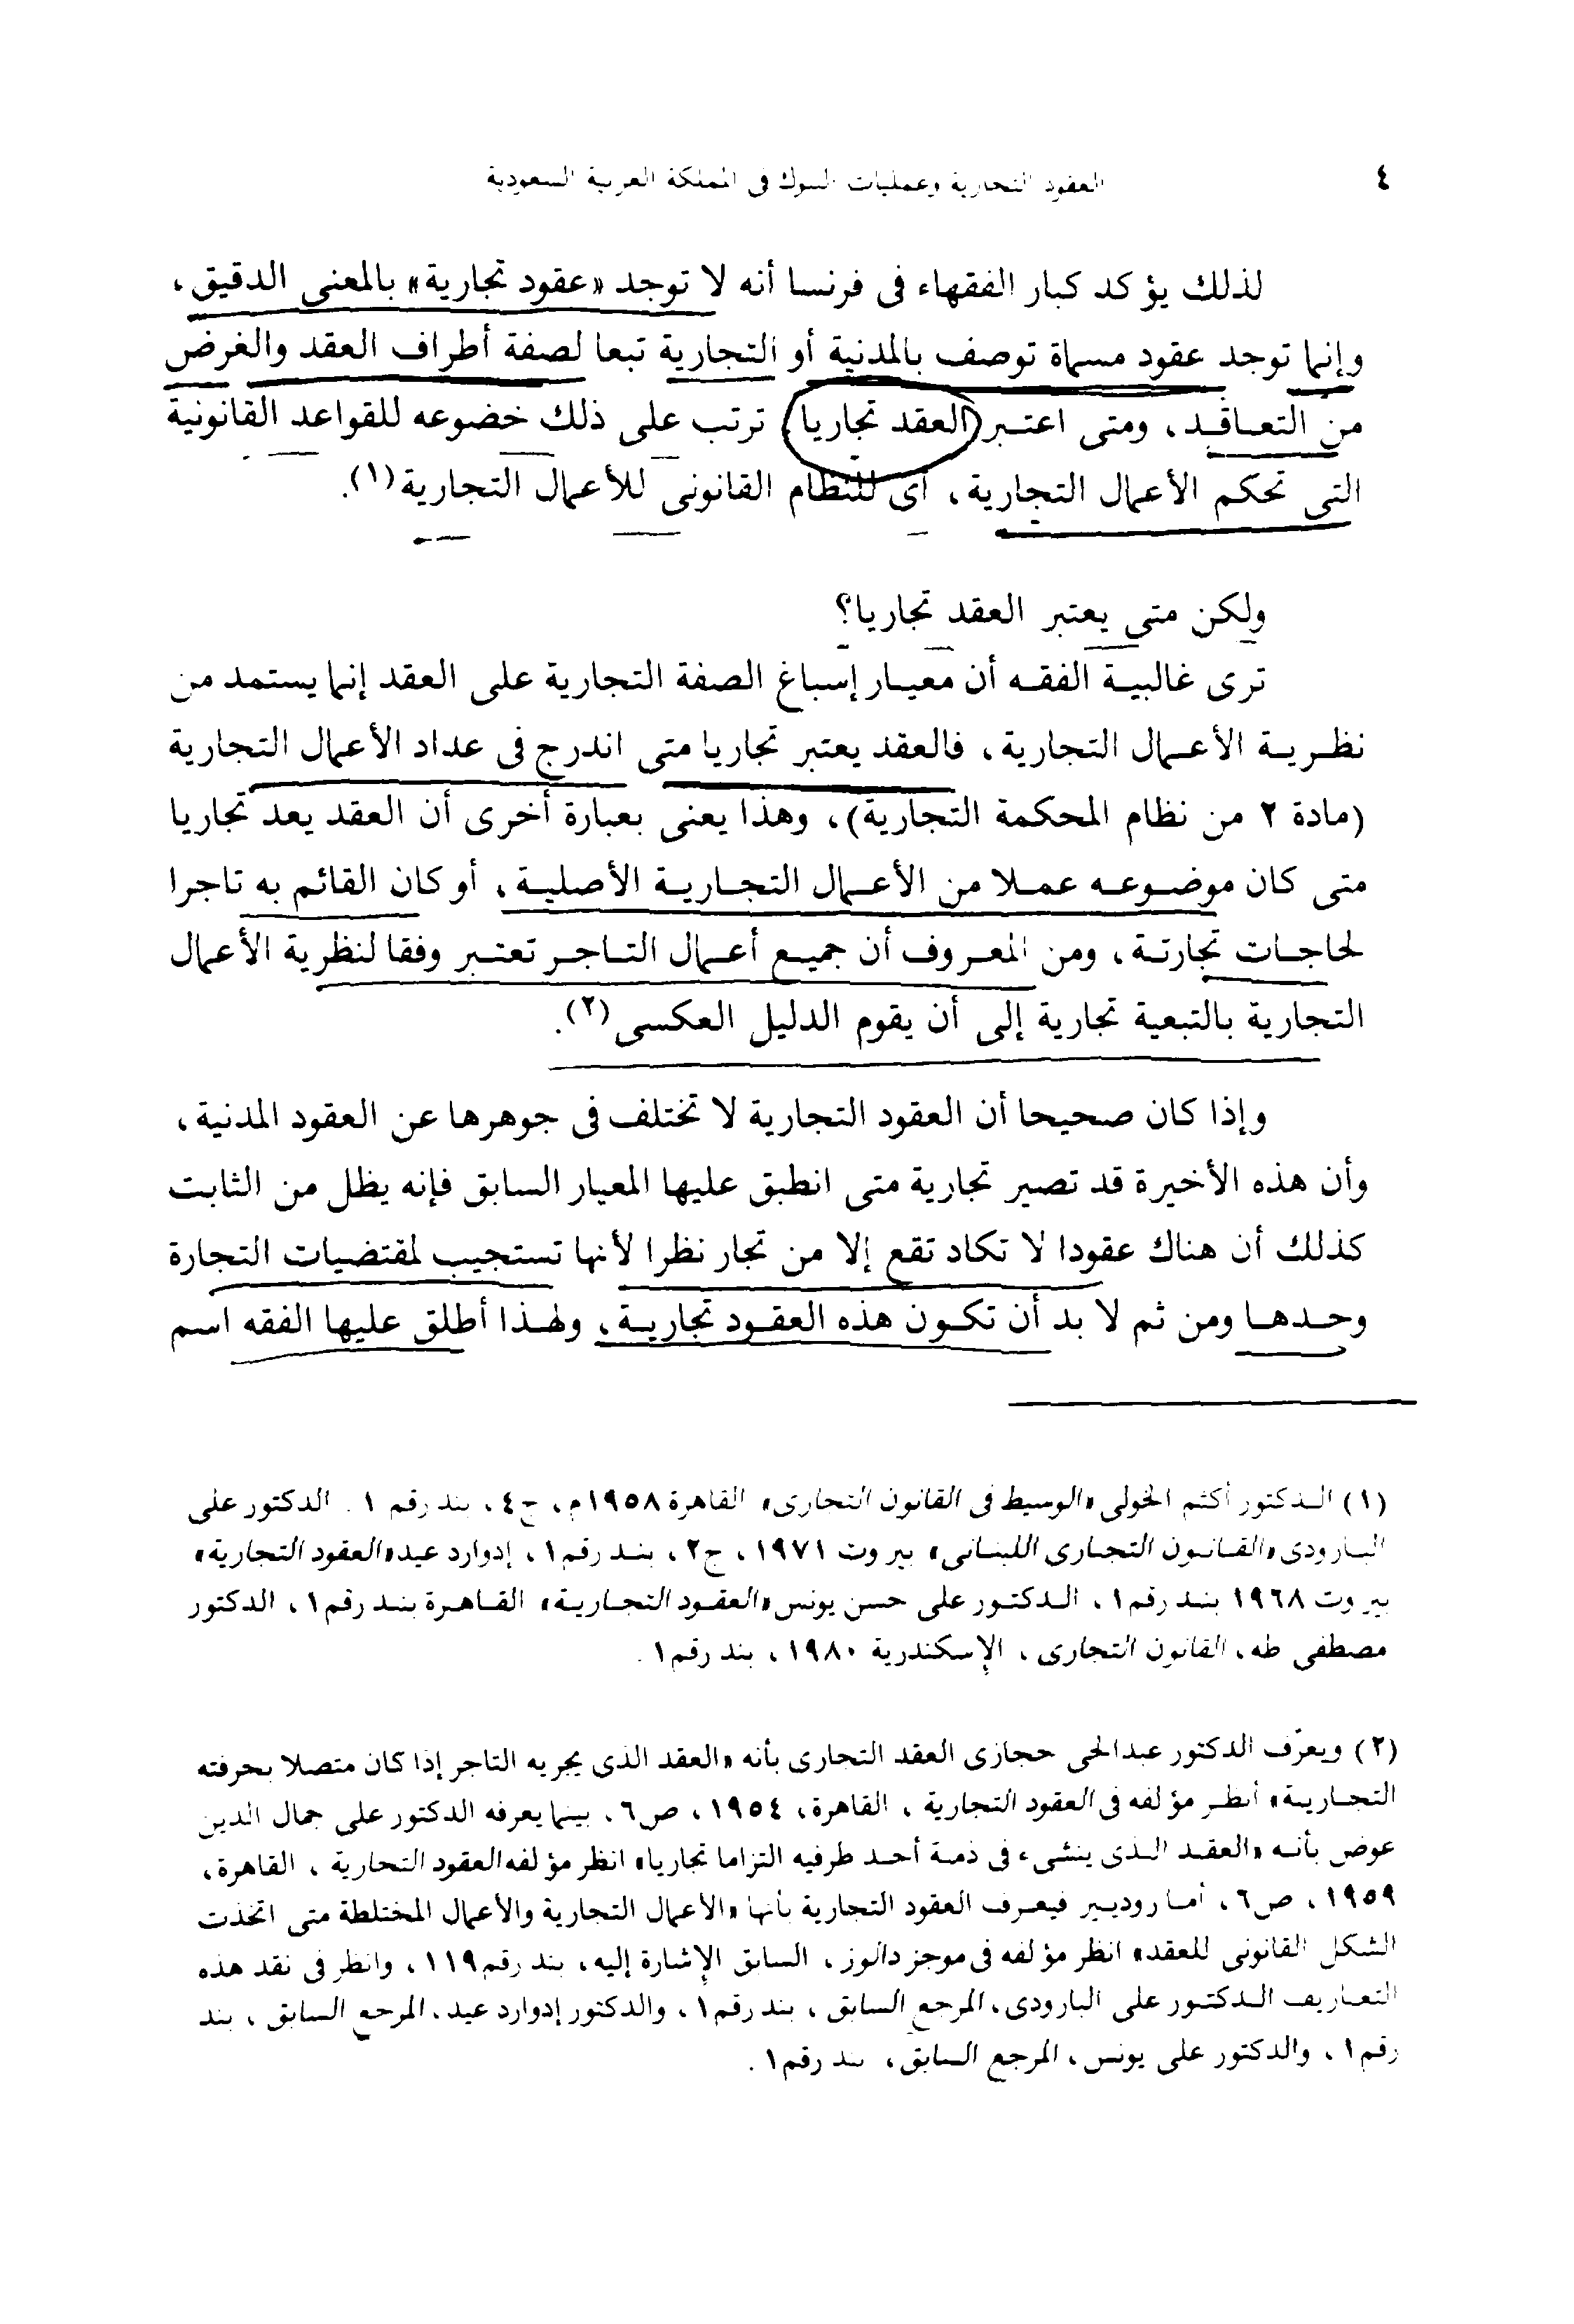 ٤
العقود التجارية وعمليات البنوك فى المملكة العربية السعودية
لذلك يؤكد كبار الفقهاء فى فرنسا أنه لا توجد «عقود تجارية» بالمعنى الدقيق،
وإنما توجد عقود مسماة توصف بالمدنية أو التجارية تبعا لصفة أطراف العقد والغرض
من التعاقد، ومتى اعتبر العقد تجاريا، ترتب على ذلك خضوعه للقواعد القانونية
التى تحكم الأعمال التجارية، أى للنظام القانونى للأعمال التجارية(١).
ولكن متى يعتبر العقد تجاريا؟
ترى غالبية الفقه أن معيار إسباغ الصفة التجارية على العقد إنما يستمد من
نظرية الأعمال التجارية، فالعقد يعتبر تجاريا متى اندرج فى عداد الأعمال التجارية
(مادة ٢ من نظام المحكمة التجارية)، وهذا يعنى بعبارة أخرى أن العقد يعد تجاريا
متى كان موضوعه عملا من الأعمال التجارية الأصلية، أو كان القائم به تاجرا
لحاجات تجارتة، ومن المعروف أن جميع أعمال التاجر تعتبر وفقا لنظرية الأعمال
التجارية بالتبعية تجارية إلى أن يقوم الدليل العكسى(٢).
وإذا كان صحيحا أن العقود التجارية لا تختلف فى جوهرها عن العقود المدنية،
وأن هذه الأخيرة قد تصير تجارية متى انطبق عليها المعيار السابق فإنه يظل من الثابت
كذلك أن هناك عقودا لا تكاد تقع إلا من تجار نظرا لأنها تستجيب لمقتضيات التجارة
وحدها ومن ثم لا بد أن تكون هذه العقود تجارية، ولهذا أطلق عليها الفقه اسم
(١) الدكتور أكثم الخولى «الوسيط فى القانون التجارى» القاهرة ١٩٥٨م، ج٤، بند رقم ١. الدكتور على
البارودى «القانون التجارى اللبنانى» بيروت ١٩٧١، ج٢، بند رقم١، إدوارد عيد «العقود التجارية»
بيروت ١٩٦٨ بند رقم١، الدكتور على حسن يونس «العقود التجارية» القاهرة بند رقم١، الدكتور
مصطفى طه، القانون التجارى، الإسكندرية ١٩٨٠، بند رقم١.
(٢) ويعرّف الدكتور عبدالحى حجازى العقد التجارى بأنه «العقد الذى يجريه التاجر إذا كان متصلا بحرفته
التجارية» أنظر مؤلفه فى العقود التجارية، القاهرة، ١٩٥٤، ص٦، بينما يعرفه الدكتور على جمال الدين
عوض بأنه «العقد الذى ينشىء فى ذمة أحد طرفيه التزاما تجاريا» انظر مؤلفه العقود التجارية، القاهرة،
١٩٥٩، ص٦، أما روديير فيعرف العقود التجارية بأنها «الأعمال التجارية والأعمال المختلطة متى اتخذت
الشكل القانونى للعقد» انظر مؤلفه فى موجز دالوز، السابق الإشارة إليه، بند رقم١١٩، وانظر فى نقد هذه
التعاريف الدكتور على البارودى، المرجع السابق، بند رقم١، والدكتور إدوارد عيد، المرجع السابق، بند
رقم١، والدكتور على يونس، المرجع السابق، بند رقم١.